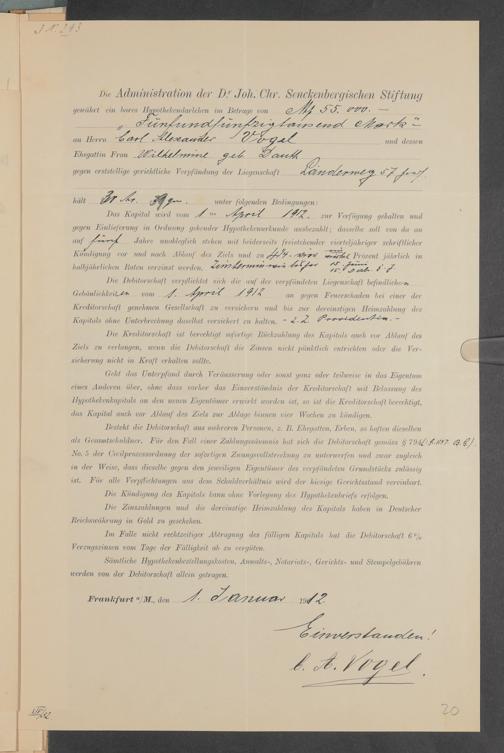 Die Administration der Dr Joh. Chr. Senckenbergischen Stiftung
gewährt ein bares Hypothekendarlehen im Betrage von M 55.000.—
„Fünfundfünfzigtausend Mark“
an Herrn Carl Alexander Vogel und dessen
Ehegattin Frau Wilhelmine geb.
gegen erststellige gerichtliche Verpfändung der Liegenschaft Länderweg 57
hält 3 Ar. 39 qm. unter folgenden Bedingungen:
Das Kapital wird vom 1ten April 1912. zur Verfügung gehalten und
gegen Einlieferung in Ordnung gehender Hypothekenurkunde ausbezahlt; dasselbe soll von da an
auf fünf Jahre unablöglich stehen mit beiderseits freistehender vierteljähriger schriftlicher
Kündigung vor und nach Ablauf des Ziels und zu 4 1/4 Prozent jährlich in
halbjährlichen Raten verzinst werden.
Die Debitorschaft verpflichtet sich die auf der verpfändeten Liegenschaft befindlichen
Gebäulichkeiten vom 1. April 1912 an gegen Feuerschaden bei einer der
Kreditorschaft genehmen Gesellschaft zu versichern und bis zur dereinstigen Heimzahlung des
Kapitals ohne Unterbrechung daselbst versichert zu halten. Providentia.
Die Kreditorschaft ist berechtigt sofortige Rückzahlung des Kapitals auch vor Ablauf des
Ziels zu verlangen, wenn die Debitorschaft die Zinsen nicht pünktlich entrichten oder die Ver-
sicherung nicht in Kraft erhalten sollte.
Geht das Unterpfand durch Veräusserung oder sonst ganz oder teilweise in das Eigentum
eines Anderen über, ohne dass vorher das Einverständnis der Kreditorschaft mit Belassung des
Hypothekenkapitals an den neuen Eigentümer erwirkt worden ist, so ist die Kreditorschaft berechtigt,
das Kapital auch vor Ablauf des Ziels zur Ablage binnen vier Wochen zu kündigen.
Besteht die Debitorschaft aus mehreren Personen, z. B. Ehegatten, Erben, so haften dieselben
als Gesamtschuldner. Für den Fall einer Zahlungssäumnis hat sich die Debitorschaft gemäss § 794
No. 5 der Civilprozessordnung der sofortigen Zwangsvollstreckung zu unterwerfen und zwar zugleich
in der Weise, dass dieselbe gegen den jeweiligen Eigentümer des verpfändeten Grundstücks zulässig
ist. Für alle Verpflichtungen aus dem Schuldverhältnis wird der hiesige Gerichtsstand vereinbart.
Die Kündigung des Kapitals kann ohne Vorlegung des Hypothekenbriefs erfolgen.
Die Zinszahlungen und die dereinstige Heimzahlung des Kapitals haben in Deutscher
Reichswährung in Gold zu geschehen.
Im Falle nicht rechtzeitiger Abtragung des fälligen Kapitals hat die Debitorschaft 6 %
Verzugszinsen vom Tage der Fälligkeit ab zu vergüten.
Sämtliche Hypothekenbestellungskosten, Anwalts-, Notariats-, Gerichts- und Stempelgebühren
werden von der Debitorschaft allein getragen.
Frankfurt a/M., den 1. Januar 1912
Einverstanden!
C. A. Vogel.
20